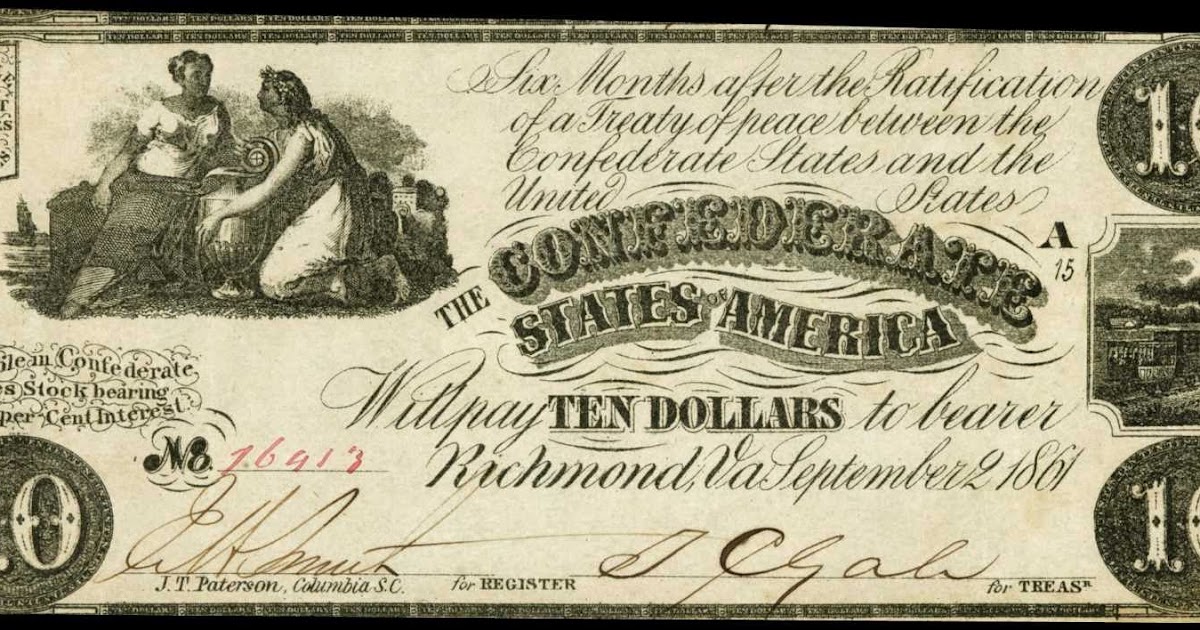 Six Months after the Ratification
of a Treaty of peace between the
Confederate States and the
United States
A
15
THE CONFEDERATE
STATES OF AMERICA
Will pay TEN DOLLARS to bearer
Richmond, Va September 2 1861
Confederate
Stock bearing
per Cent Interest.
No. 76913
10
10
J. T. Paterson, Columbia S.C.
for REGISTER
for TREASR